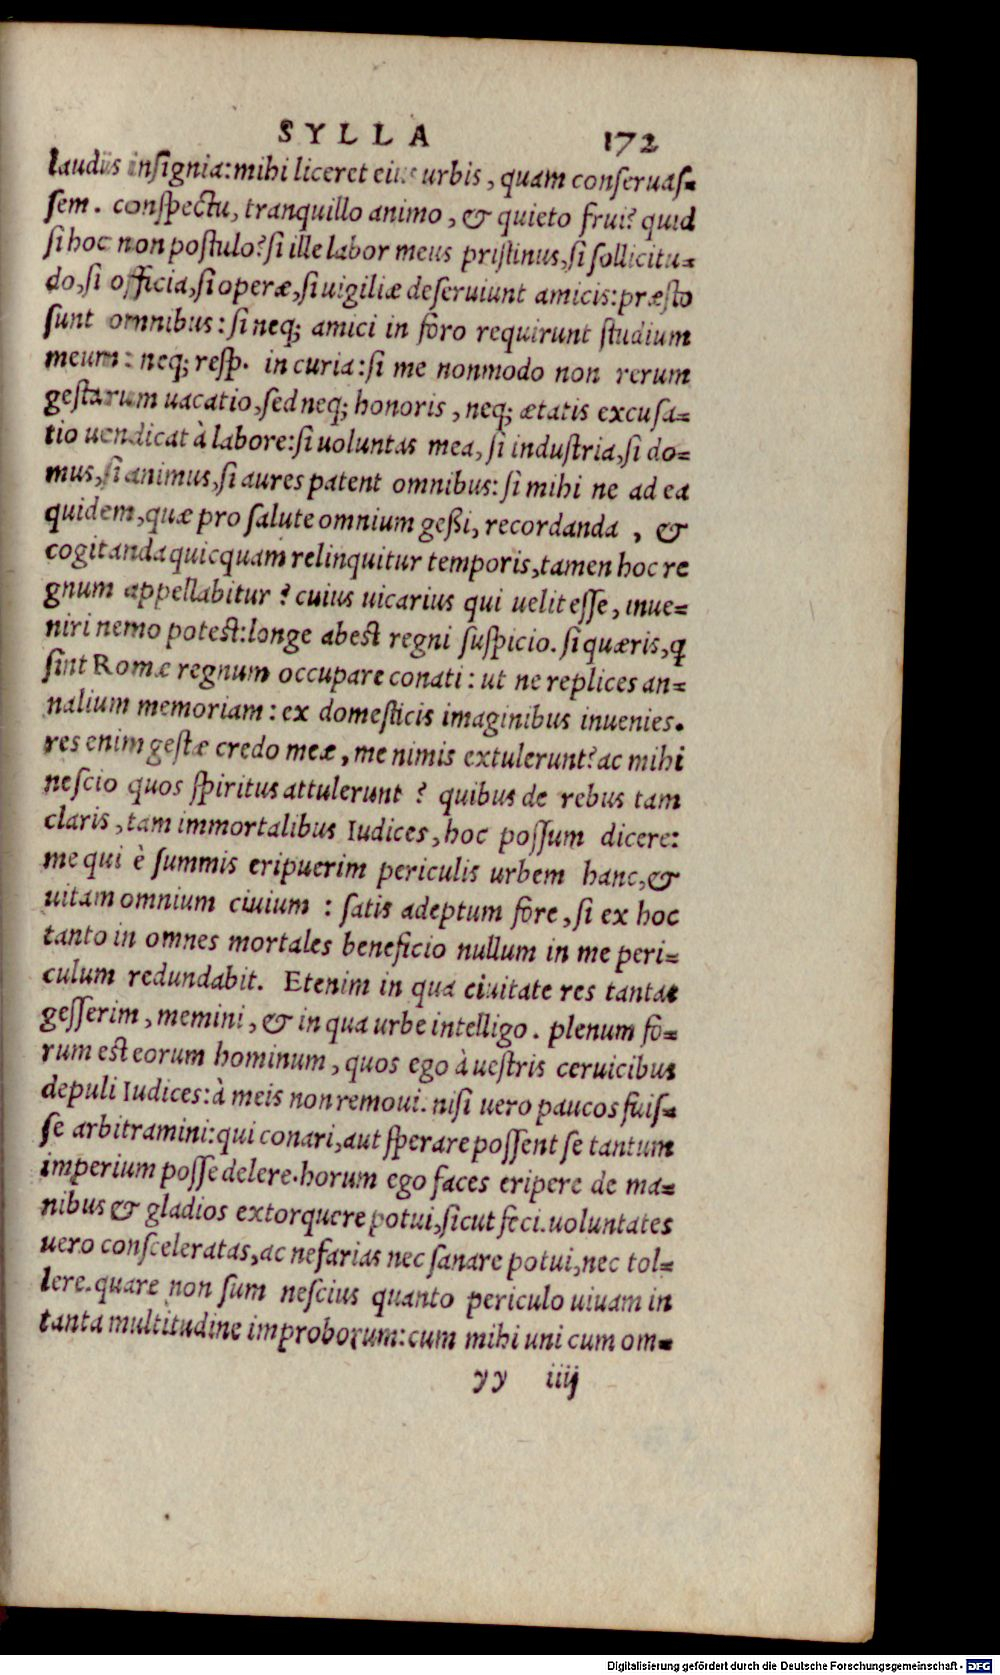 SYLLA 172
laudijs insignia: mihi liceret eius urbis, quam conseruas-
sem. conspectu, tranquillo animo, & quieto frui? quid
si hoc non postulo? si ille labor meus pristinus, si sollicitu-
do, si officia, si operæ, si uigiliæ deseruiunt amicis: præsto
sunt omnibus: si neq; amici in foro requirunt studium
meum: neq; resp. in curia: si me nonmodo non rerum
gestarum uacatio, sed neq; honoris, neq; ætatis excusa-
tio uendicat à labore: si uoluntas mea, si industria, si do-
mus, si animus, si aures patent omnibus: si mihi ne ad ea
quidem, quæ pro salute omnium geßi, recordanda, &
cogitanda quicquam relinquitur temporis, tamen hoc re
gnum appellabitur? cuius uicarius qui uelit esse, inue-
niri nemo potest: longe abest regni suspicio. si quæris, q
sint Romæ regnum occupare conati: ut ne replices an-
nalium memoriam: ex domesticis imaginibus inuenies.
res enim gestæ credo meæ, me nimis extulerunt? ac mihi
nescio quos spiritus attulerunt? quibus de rebus tam
claris, tam immortalibus Iudices, hoc possum dicere:
me qui è summis eripuerim periculis urbem hanc, &
uitam omnium ciuium: satis adeptum fore, si ex hoc
tanto in omnes mortales beneficio nullum in me peri-
culum redundabit. Etenim in qua ciuitate res tantas
gesserim, memini, & in qua urbe intelligo. plenum fo-
rum est eorum hominum, quos ego à uestris ceruicibus
depuli Iudices: à meis non remoui. nisi uero paucos fuis-
se arbitramini: qui conari, aut sperare possent se tantum
imperium posse delere. horum ego faces eripere de ma-
nibus & gladios extorquere potui, sicut feci. uoluntates
uero consceleratas, ac nefarias nec sanare potui, nec tol-
lere. quare non sum nescius quanto periculo uiuam in
tanta multitudine improborum: cum mihi uni cum om-
yy iiij
Digitalisierung gefördert durch die Deutsche Forschungsgemeinschaft - DFG